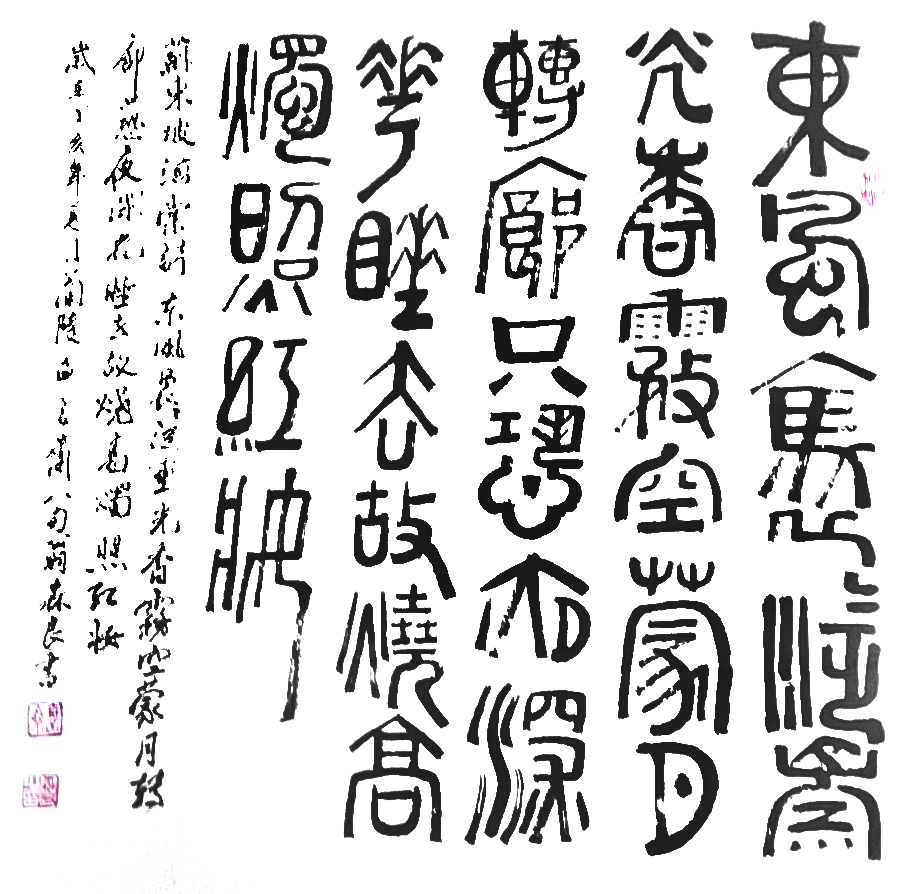 東風裊々泛崇
光香霧空蒙月
轉廊只恐夜深
花睡去故燒高
燭照紅妝
蘇東坡海棠詩 东風裊々泛崇光香霧空蒙月轉
廊只恐夜深花睡去故燒高燭照紅妝
歲在丁亥年月蘭陵八旬翁森良書